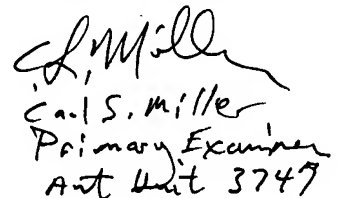 C. S. Miller
Carl S. Miller
Primary Examiner
Art Unit 3747